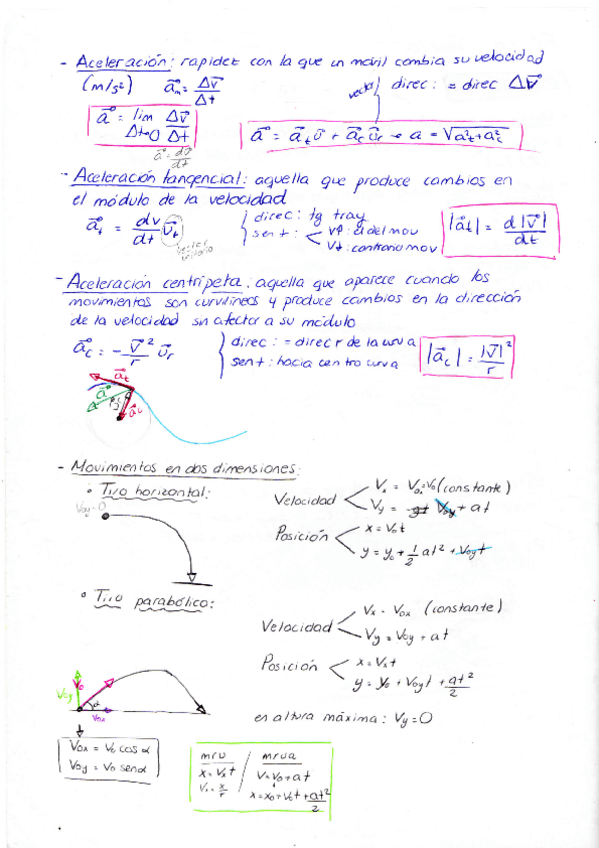 - Aceleración: rapidez con la que un móvil cambia su velocidad
(m/s²) a⃗m = Δv⃗/Δt
vector direc: = direc Δv⃗
a⃗ = lim Δt→0 Δv⃗/Δt
a⃗ = dv⃗/dt
a⃗ = a⃗t v⃗ + a⃗c u⃗r → a = √a²t+a²c
- Aceleración tangencial: aquella que produce cambios en
el módulo de la velocidad
a⃗t = dv/dt u⃗t
vector unitario
direc: tg tray
sent: v↑: el del mov
v↓: contrario mov
|a⃗t| = d|v⃗|/dt
- Aceleración centrípeta: aquella que aparece cuando los
movimientos son curvilíneos y produce cambios en la dirección
de la velocidad sin afectar a su módulo
a⃗c = - v⃗²/r u⃗r
direc: = direc r de la curva
sent: hacia centro curva
|a⃗c| = |v⃗|²/r
a⃗t
a⃗
a⃗c
- Movimientos en dos dimensiones:
• Tiro horizontal:
Voy=0
Velocidad
Vx = Vox=Vo (constante)
Vy = -gt Voy + at
Posición
x = Vot
y = yo + 1/2 at² + Voyt
• Tiro parabólico:
Velocidad
Vx = Vox (constante)
Vy = Voy + at
Posición
x = Vxt
y = yo + Voyt + at²/2
Voy
Vo
α
Vox
en altura máxima: Vy = 0
Vox = Vo cos α
Voy = Vo sen α
mru / mrua
x = Vxt
V = Vo + at
Vx = x/t
x = xo + Vot + at²/2